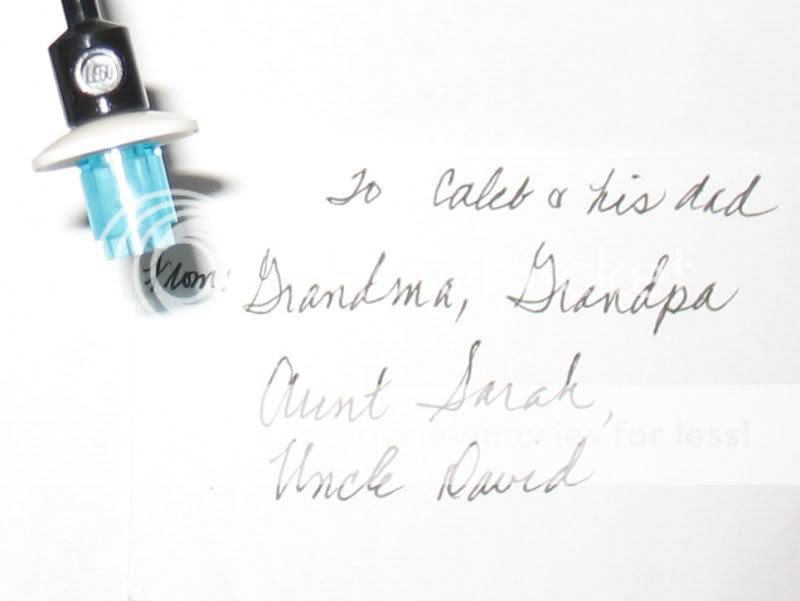 LEGO
To Caleb & his dad
From: Grandma, Grandpa
Aunt Sarah,
Uncle David
memories for less!